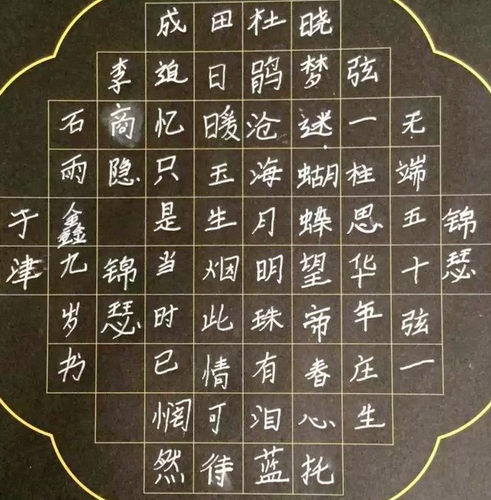 锦瑟
无端五十弦一
弦一柱思华年庄生
晓梦迷蝴蝶望帝春心托
杜鹃沧海月明珠有泪蓝
田日暖玉生烟此情可待
成追忆只是当时已惘然
李商隐 锦瑟
石雨鑫九岁书
于津